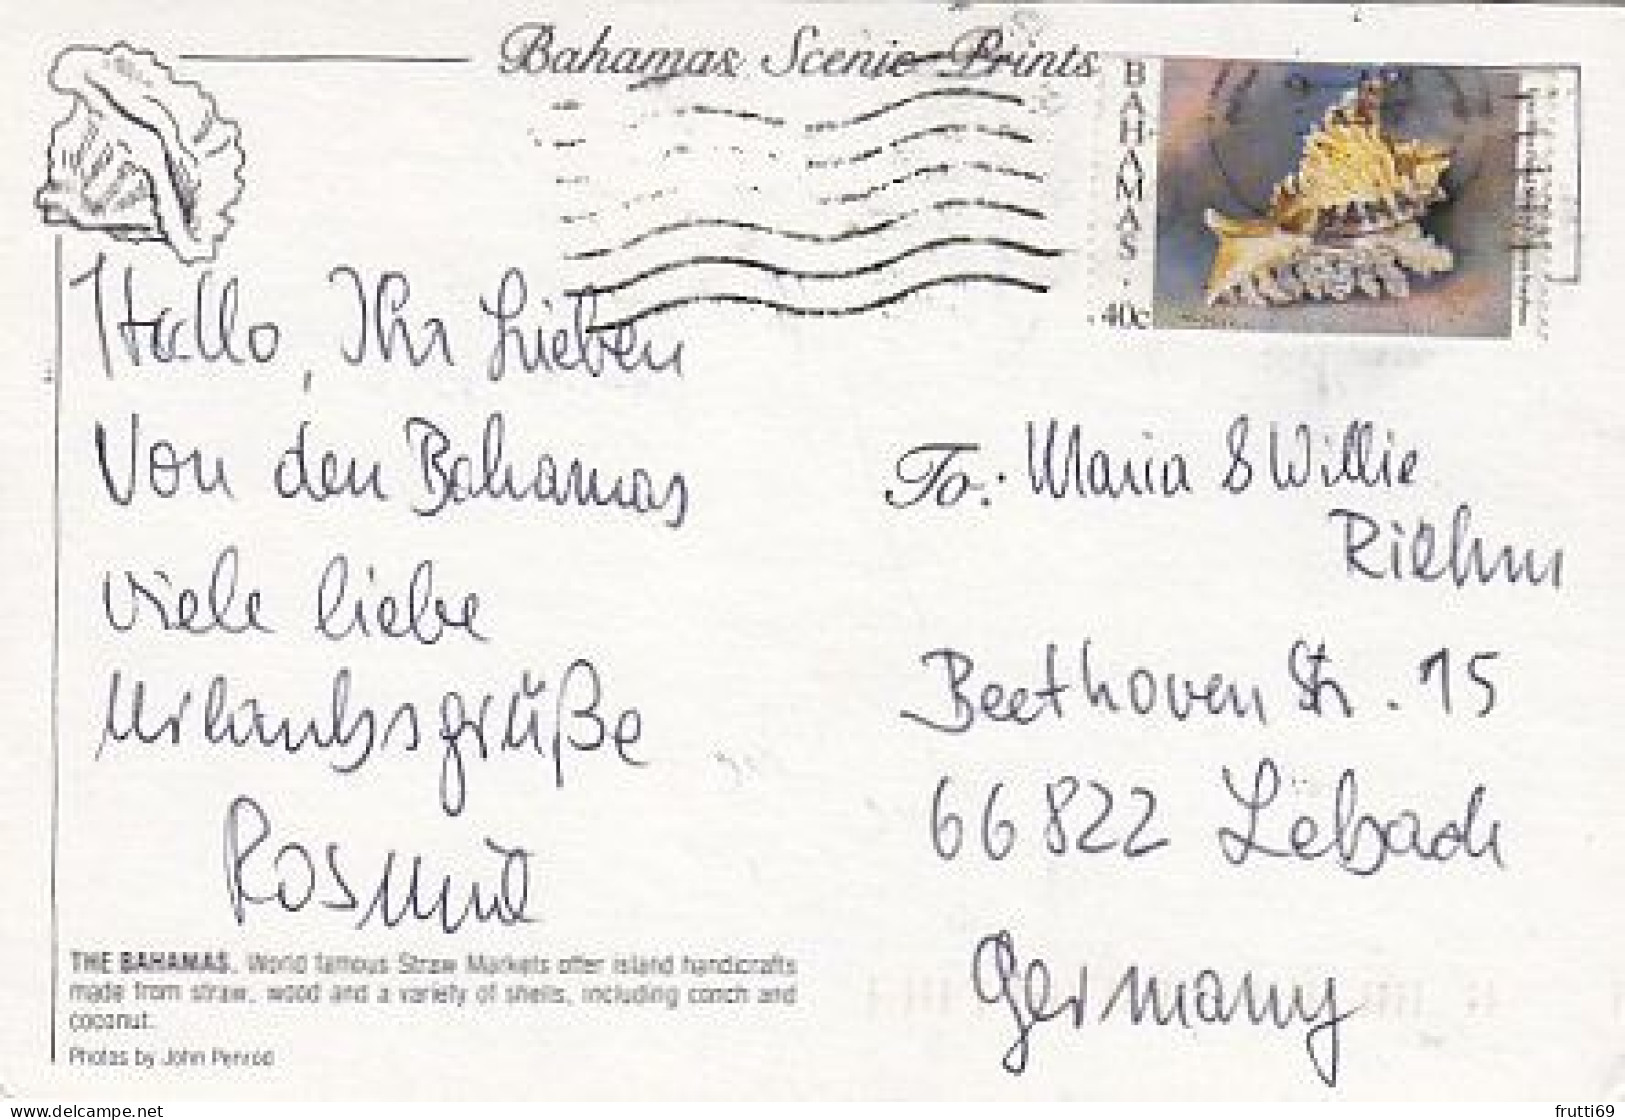 Bahamas Scenic Prints
BAHAMAS
40c
Hallo, Ihr Lieben
Von den Bahamas
viele liebe
Urlaubsgrüße
To: Maria & Willie
Riehm
Beethoven Str. 15
66822 Lebach
Germany
THE BAHAMAS. World famous Straw Markets offer island handicrafts
made from straw, wood and a variety of shells, including conch and
coconut.
Photos by John Penrod
frutti69